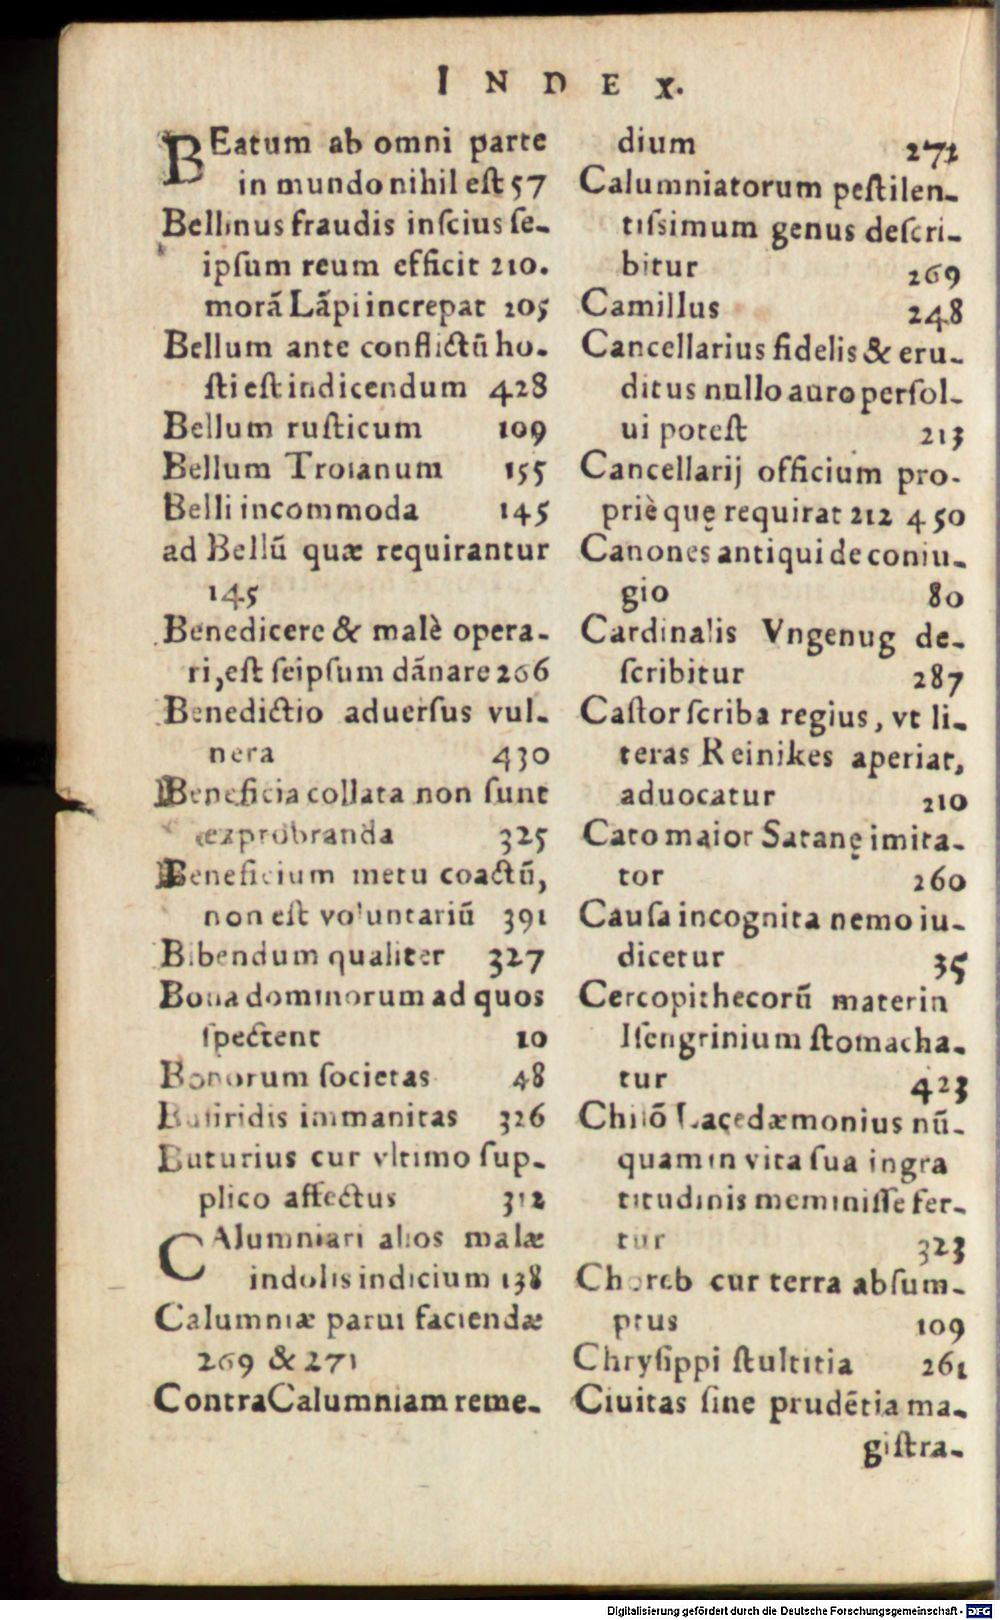 INDEX.
BEatum ab omni parte
in mundo nihil est 57
Bellinus fraudis inscius se-
ipsum reum efficit 210.
morā Lāpi increpat 205
Bellum ante conflictū ho-
sti est indicendum 428
Bellum rusticum 109
Bellum Troianum 155
Belli incommoda 145
ad Bellū quæ requirantur
145
Benedicere & malè opera-
ri, est seipsum dānare 266
Benedictio aduersus vul-
nera 430
Beneficia collata non sunt
exprobranda 325
Beneficium metu coactū,
non est voluntariū 391
Bibendum qualiter 327
Bona dominorum ad quos
spectent 10
Bonorum societas 48
Busiridis immanitas 326
Buturius cur vltimo sup-
plico affectus 312
CAlumniari alios malæ
indolis indicium 138
Calumniæ parui faciendæ
269 & 271
Contra Calumniam reme-
dium 272
Calumniatorum pestilen-
tissimum genus descri-
bitur 269
Camillus 248
Cancellarius fidelis & eru-
ditus nullo auro persol-
ui potest 213
Cancellarij officium pro-
priè quę requirat 212 450
Canones antiqui de coniu-
gio 80
Cardinalis Vngenug de-
scribitur 287
Castor scriba regius, vt li-
teras Reinikes aperiat,
aduocatur 210
Cato maior Satanę imita-
tor 260
Causa incognita nemo iu-
dicetur 35
Cercopithecorū materia
Isengrinium stomacha-
tur 423
Chilō Lacedæmonius nū-
quam in vita sua ingra
titudinis meminisse fer-
tur 323
Choreb cur terra absum-
ptus 109
Chrysippi stultitia 261
Ciuitas sine prudētia ma-
gistra-
Digitalisierung gefördert durch die Deutsche Forschungsgemeinschaft - DFG